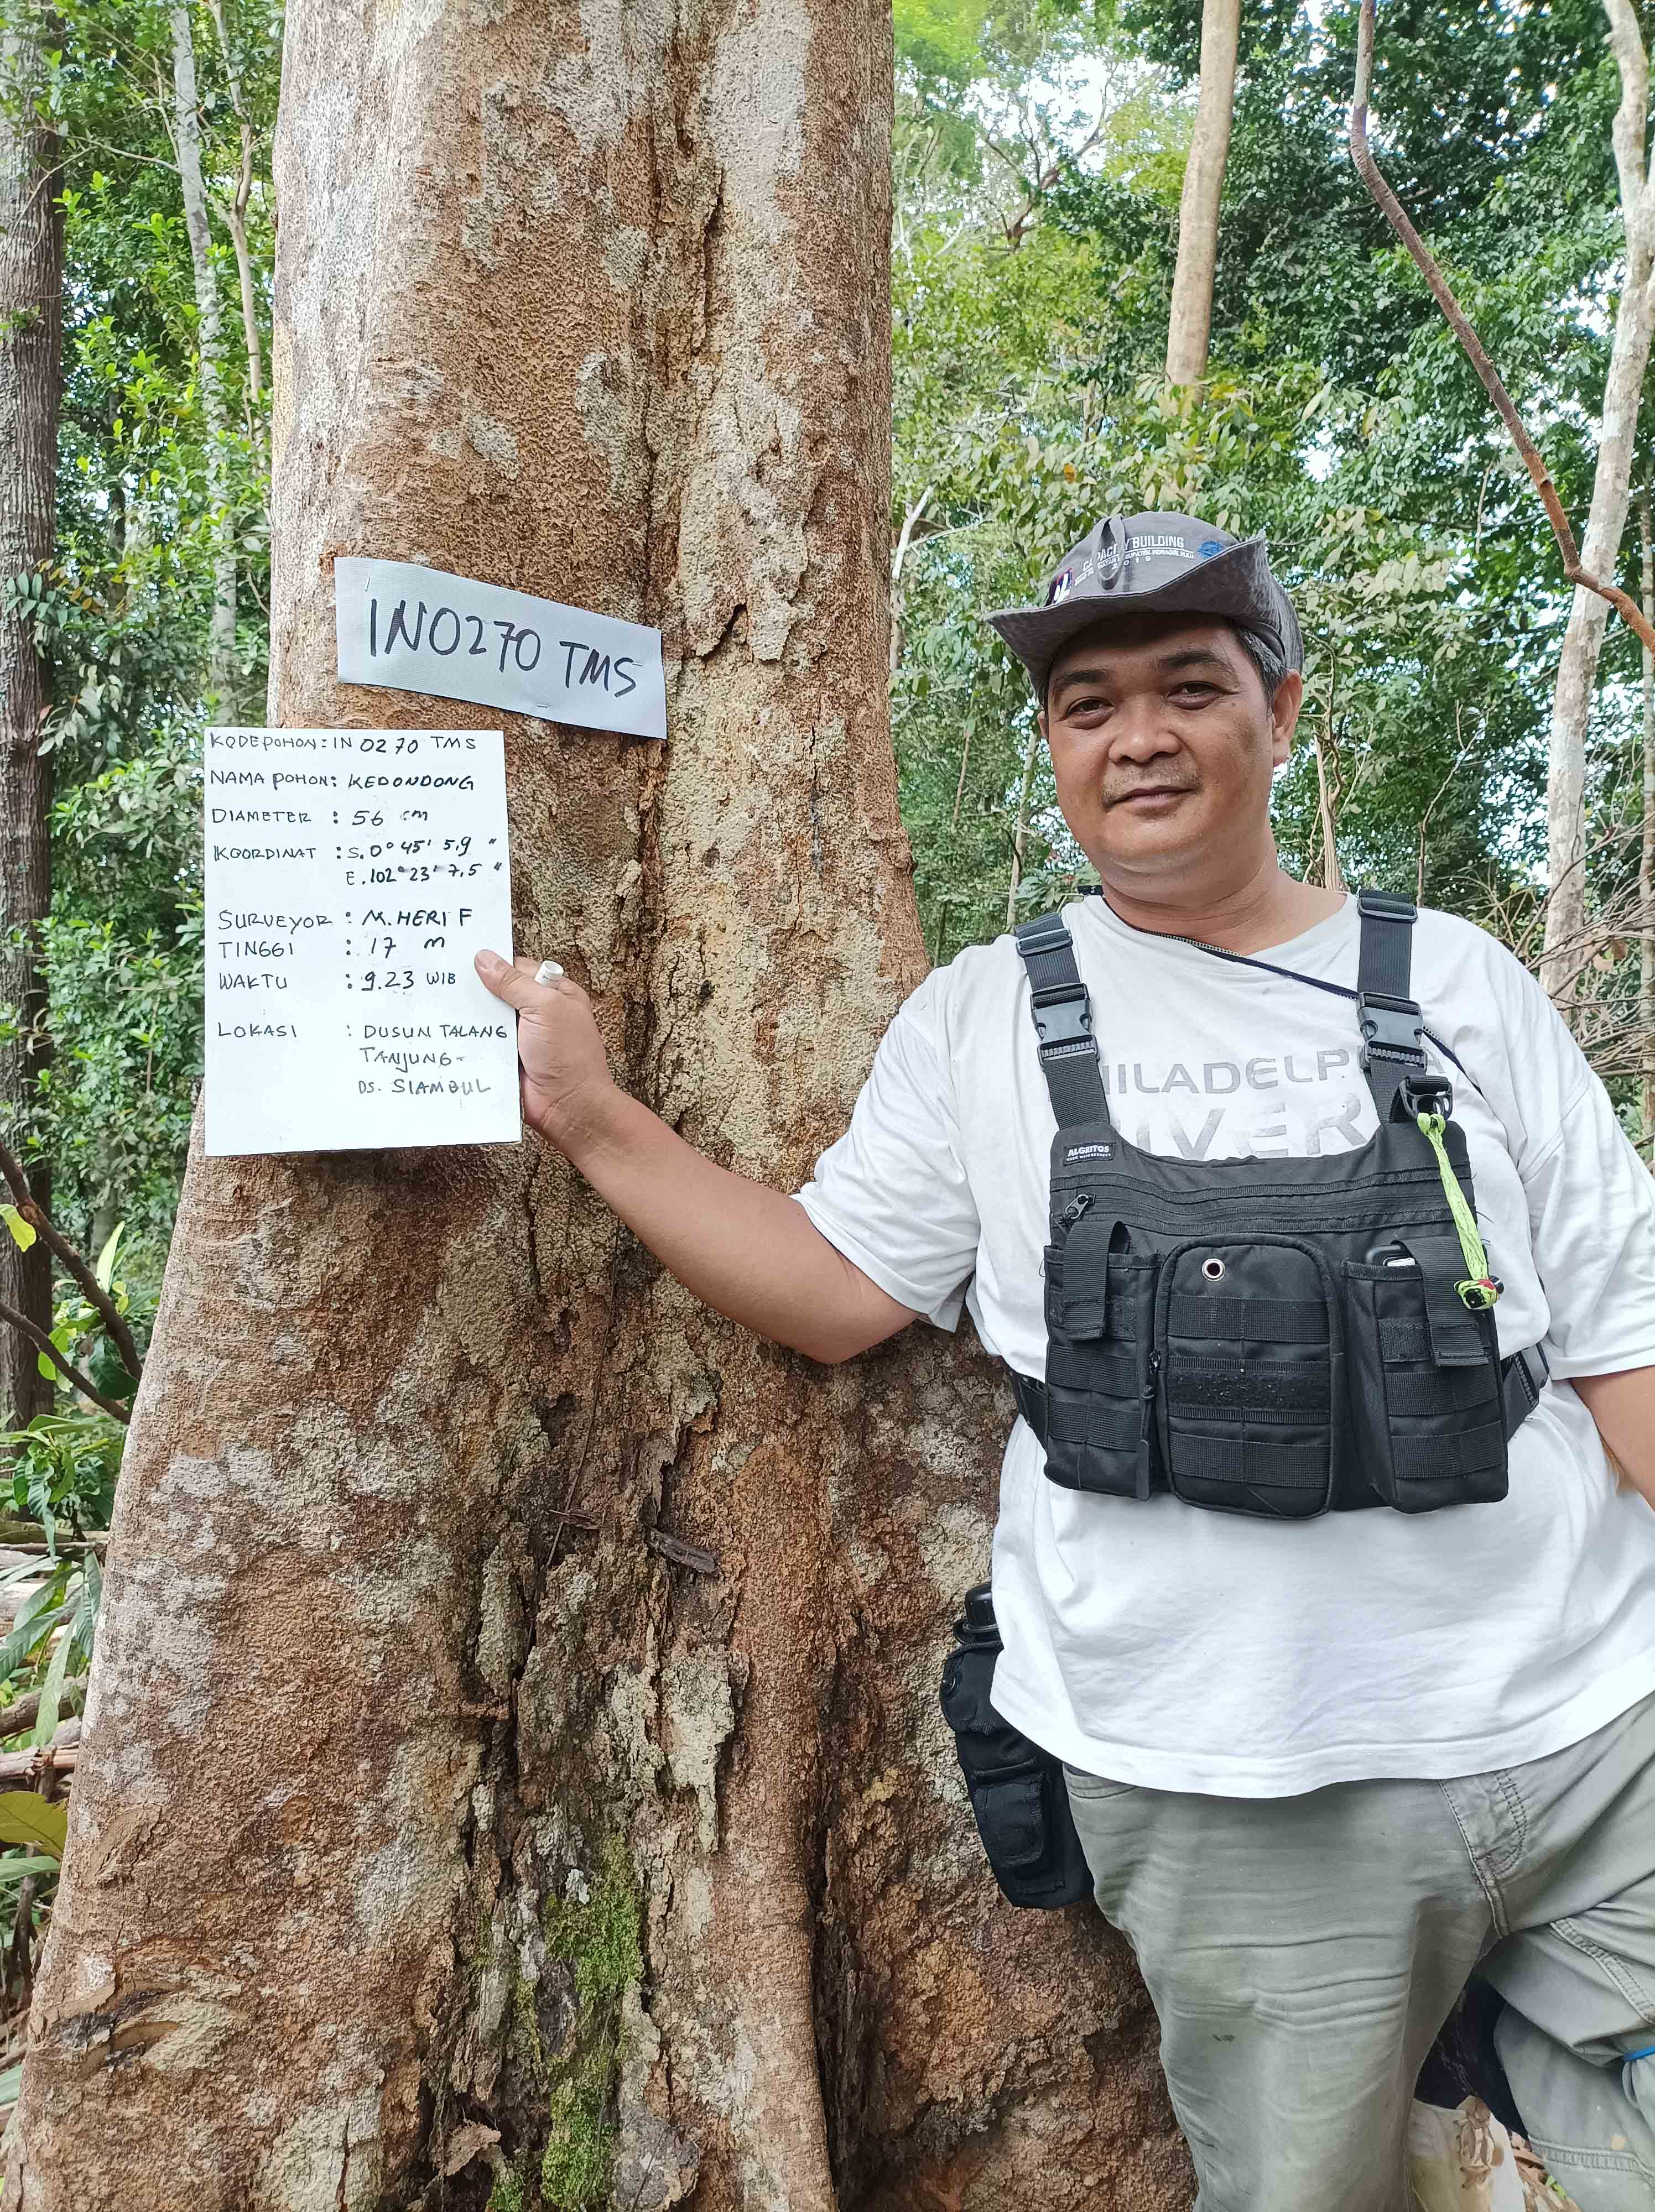 IN0270 TMS
KODE POHON : IN 0270 TMS
NAMA POHON : KEDONDONG
DIAMETER : 56 cm
KOORDINAT : S. 0° 45' 5,9 "
E. 102° 23' 7,5 "
SURVEYOR : M. HERI F
TINGGI : 17 m
WAKTU : 9.23 WIB
LOKASI : DUSUN TALANG
TANJUNG-
DS. SIAMBUL
BUILDING
2019
ALGRITOS